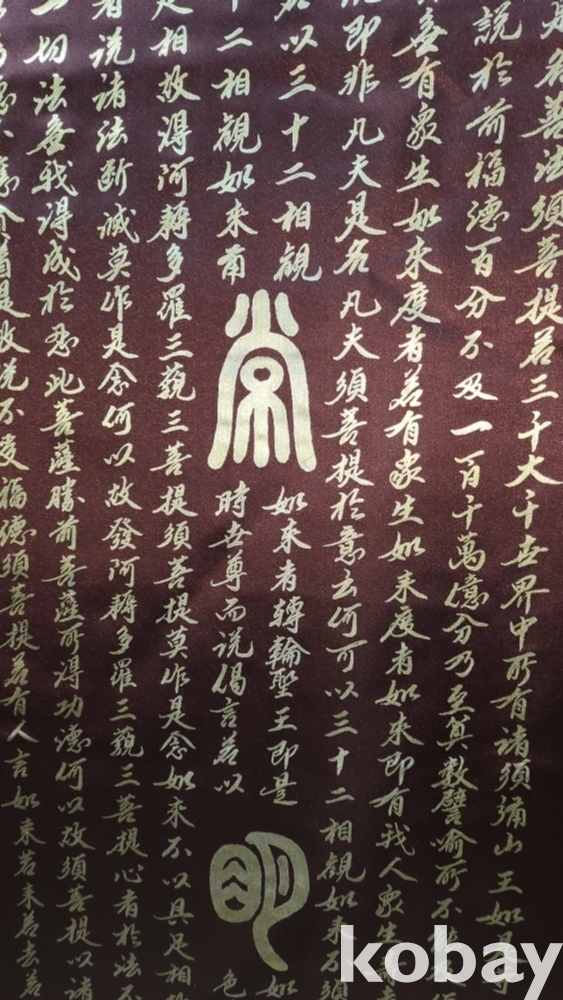 是名善法須菩提若三千大千世界中所有諸須彌山王如是
說於前福德百分不及一百千萬億分乃至算數譬喻所不能及
無有眾生如來度者若有眾生如來度者如來即有我人眾生
即非凡夫是名凡夫須菩提於意云何可以三十二相觀如來不須
以三十二相觀
十二相觀如來爾
常
如來者轉輪聖王即是
時世尊而說偈言若以
明
如
色
是相故得阿耨多羅三藐三菩提須菩提莫作是念如來不以具足相故
者說諸法斷滅莫作是念何以故發阿耨多羅三藐三菩提心者於法不
一切法無我得成於忍此菩薩勝前菩薩所得功德何以故須菩提以諸
是故說不受福德須菩提若有人言如來若來若去若
kobay